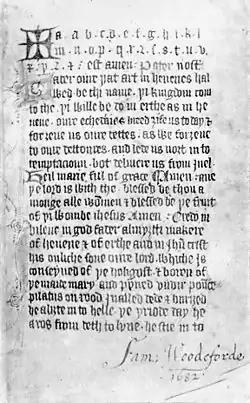 ✠ a. a b c d e f g h i k l
m n o p q r ꝛ s s t u v
x y z ⁊ : est amen : Pater nost
ater oure þat art in heuenes hal
wed be thi name. þi kingdom com
to the. þi wille be do in erthe as in he
uene. oure eche daies breed ȝiue us today ⁊
forȝeue us oure dettes. as we forȝeue
to oure dettoures. and lede us nott in to
temptacioun. bot delyuere us from iuel
Heil marie ful of grace Amen. Aue
þe lord is with the blessed be thou a
monge alle wommen ⁊ blessed be þe fruit
of þi wombe ihesus Amen : Credo in
bileue in god fader almyȝti makere
of heuene ⁊ of erthe and in ihu crist
his onliche sone oure lord. whiche is
conseyued of þe holi gost. ⁊ boren of
þe maide mary. and pyned vndir pounce
pilatus on rood ynailed dede ⁊ buryed
he aliȝte in to helle. þe þridde day he
aros from deth to lyue. he stie in to
Sam: Woodeforde
1682